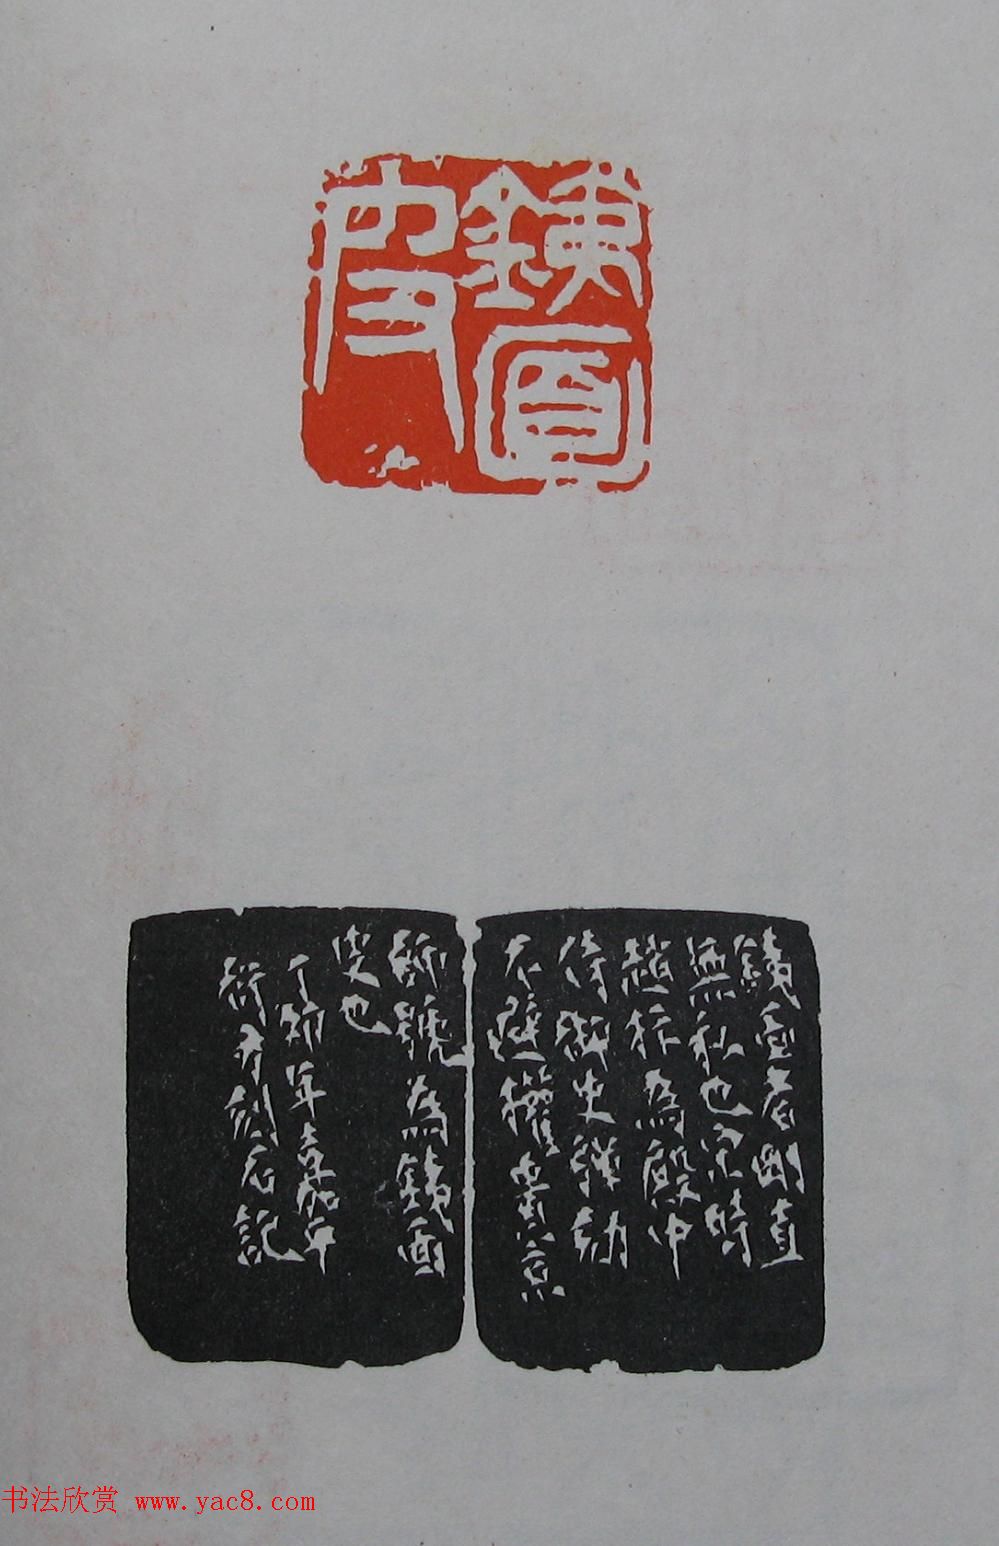 銕面
叟
銕面者剛直
無私也宋時
趙抃為殿中
侍御史彈劾
不避權貴京
師號為銕面
叟也
丁卯年嘉平
刻石記
书法欣赏 www.yac8.com